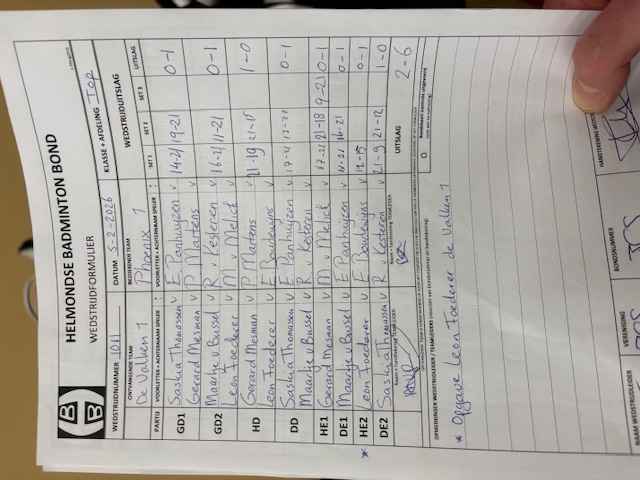 HELMONDSE BADMINTON BOND
WEDSTRIJDFORMULIER
WEDSTRIJDNUMMER 1011 DATUM 5-2-2026 KLASSE + AFDELING Top
ONTVANGENDE TEAM BEZOEKENDE TEAM WEDSTRIJDUITSLAG
De Valken 1 Phoenix 1
PARTIJ VOORLETTER + ACHTERNAAM SPELER : VOORLETTER + ACHTERNAAM SPELER : SET 1 SET 2 SET 3 UITSLAG
GD1 Saskia Thomassen v E Panhuijzen v 14-21 19-21 0-1
Gerard Mesman v P Martens v
GD2 Maartje v Bussel v R v Kesteren v 16-21 11-21 0-1
Leon Foederer v M v Melick v
HD Gerard Mesman v P Martens v 21-19 1-0
Leon Foederer v E Boudewijns v
DD Saskia Thomassen v E Panhuijzen v 0-1
Maartje v Bussel v R v Kesteren v
HE1 Gerard Mesman v M v Melick v 17-21 21-18 9-21 0-1
DE1 Maartje v Bussel v E Panhuijzen v 11-21 16-21 0-1
* HE2 Leon Foederer v E Boudewijns v 0-1
DE2 Saskia Thomassen v R v Kesteren v 21-9 21-12 1-0
UITSLAG 2-6
* Opgave Leon Foederer de Valken 1
HANDTEKENING
VERENIGING
BONDSNUMMER
NAAM WEDSTRIJDLEIDER